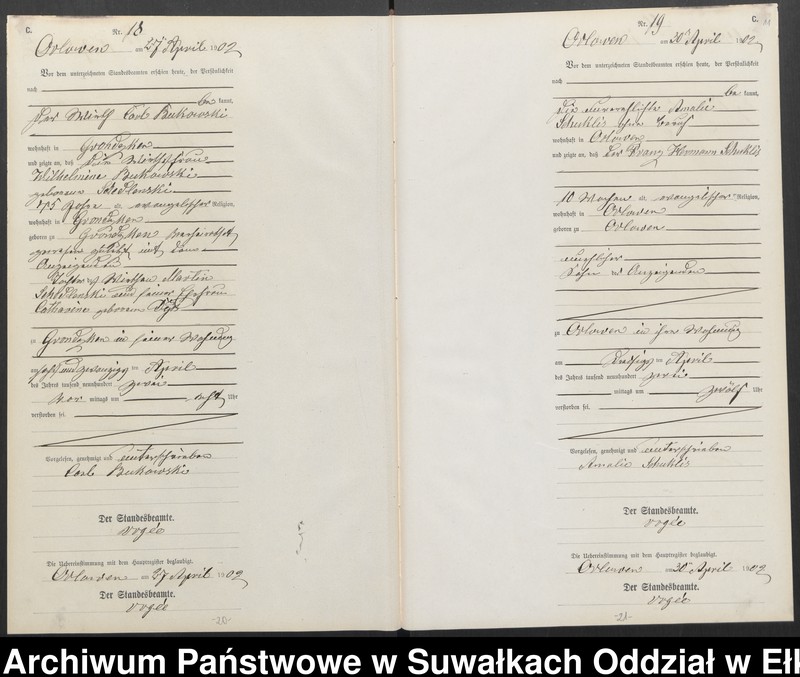 C.
Nr. 18
Orlowen am 27 April 1902
Vor dem unterzeichneten Standesbeamten erschien heute, der Persönlichkeit
nach
be kannt,
der Wirth Carl Bukowski
wohnhaft in Grondzken
und zeigte an, daß die Wirthsfrau
Wilhelmine Bukowski
geborene
75 Jahre a evangelischer Religion,
wohnhaft in Grondzken
geboren zu Grondzken verheirathet
gewesen mit dem
Anzeigenden
Tochter des Wirthen Martin
und seiner Ehefrau
Catharine geborene
zu Grondzken in seiner Wohnung
am und zwanzigsten April
des Jahres tausend neunhundert zwei
vor mittags um acht Uhr
verstorben sei.
Vorgelesen, genehmigt und unterschrieben
Carl Bukowski
Der Standesbeamte.
Vogée
Die Uebereinstimmung mit dem Hauptregister beglaubigt.
Orlowen am 27 April 1902
Der Standesbeamte.
Vogée
-20-
C.
Nr. 19
Orlowen am 30 April 1902
Vor dem unterzeichneten Standesbeamten erschien heute, der Persönlichkeit
nach
be kannt,
die unverehelichte Amalie
Schuklis ohne Beruf
wohnhaft in Orlowen
und zeigte an, daß der Franz Hermann Schuklis
10 Wochen alt, evangelischer Religion,
wohnhaft in Orlowen
geboren zu Orlowen
unehelicher
Sohn der Anzeigenden
zu Orlowen in ihrer Wohnung
am April
des Jahres tausend neunhundert zwei
mittags um zwölf Uhr
verstorben sei.
Vorgelesen, genehmigt und unterschrieben
Amalie Schuklis
Der Standesbeamte.
Vogée
Die Uebereinstimmung mit dem Hauptregister beglaubigt.
Orlowen am 30 April 1902
Der Standesbeamte.
Vogée
-21-
Archiwum Państwowe w Suwałkach Oddział w Ełk